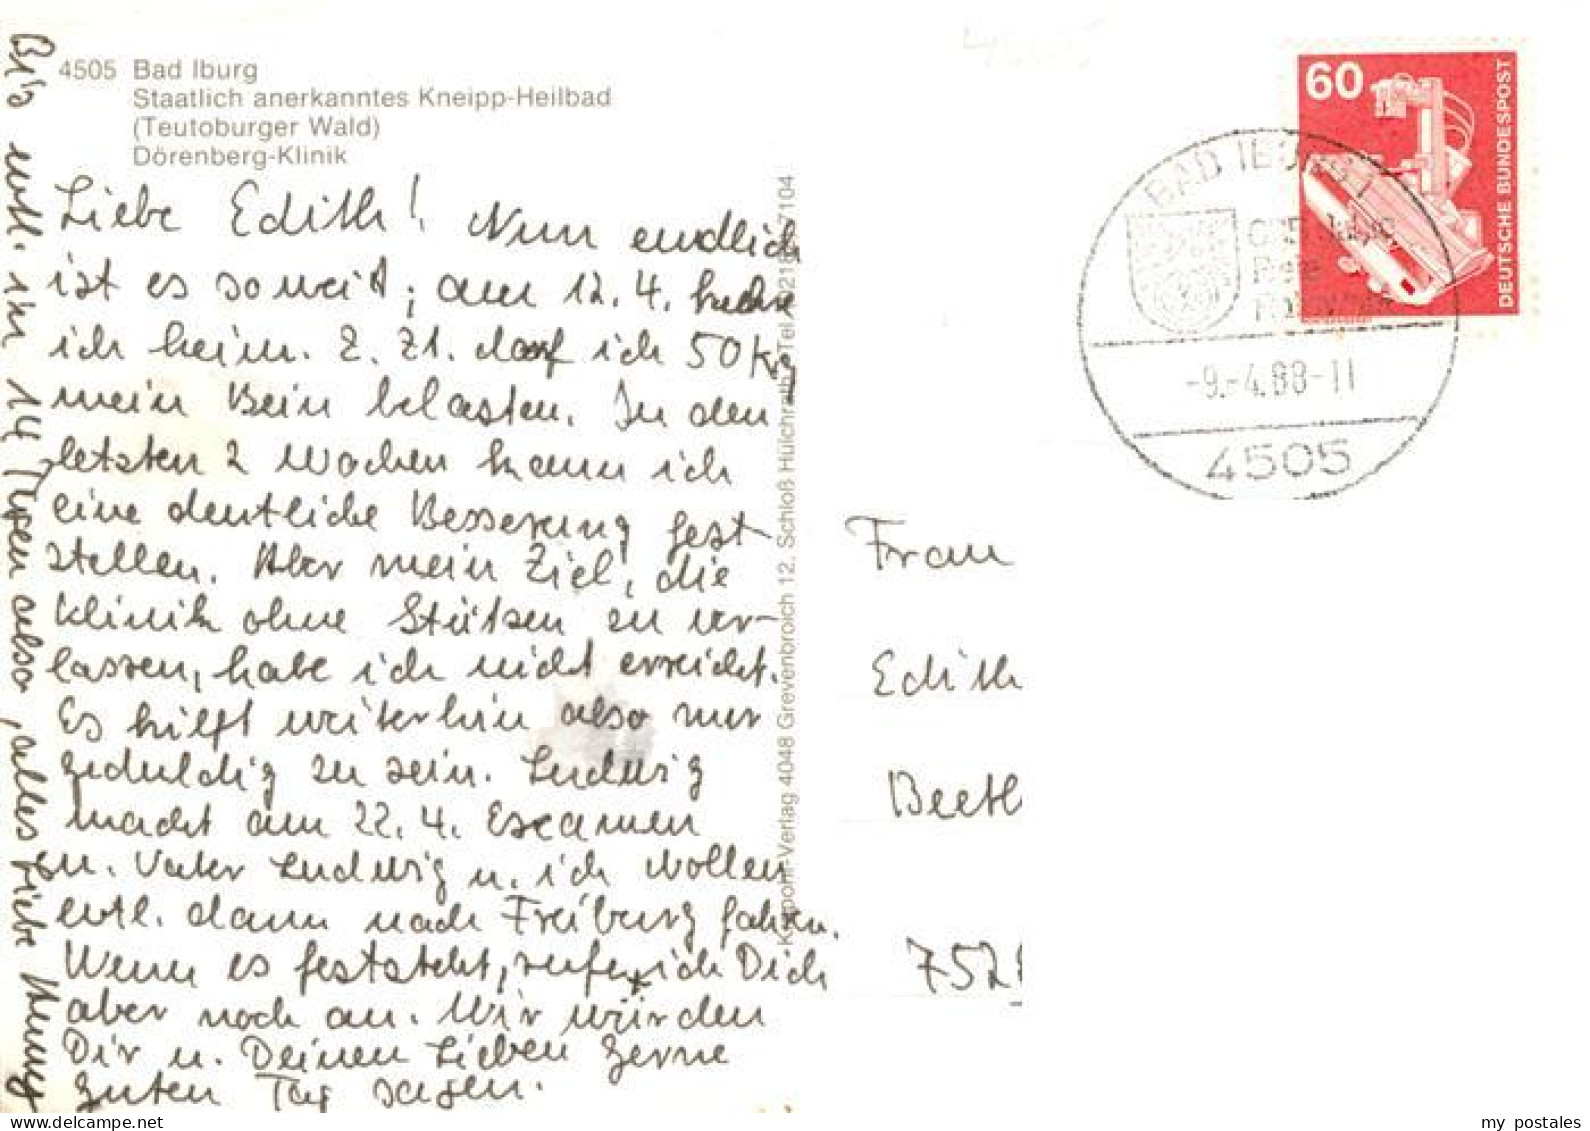 4505 Bad Iburg
Staatlich anerkanntes Kneipp-Heilbad
(Teutoburger Wald)
Dörenberg-Klinik
Liebe Edith! Nun endlich
ist es soweit; am 12. 4. kehre
ich heim. Z. Zt. darf ich 50 kg
mein Bein belasten. In den
letzten 2 Wochen kann ich
eine deutliche Besserung fest-
stellen. Aber mein Ziel, die
Klinik ohne Stützen zu ver-
lassen, habe ich nicht erreicht.
Es hilft weiterhin also nur
geduldig zu sein. Ludwig
macht am 22. 4. Examen
Vater Ludwig u. ich wollen
evtl. dann nach Freiburg fahren.
Wenn es feststeht, rufe ich Dich
aber noch an. Wir würden
Dir u. Deinen Lieben gerne
guten Tag sagen.
Bis evtl. in 14 Tagen also, alles Liebe
Krapohl-Verlag 4048 Grevenbroich 12, Schloß Hülchrath, Tel. 02182/7104
60
DEUTSCHE BUNDESPOST
BAD IBURG 1
-9.-4.88-11
4505
Frau
Edith
Beeth
752
my postales